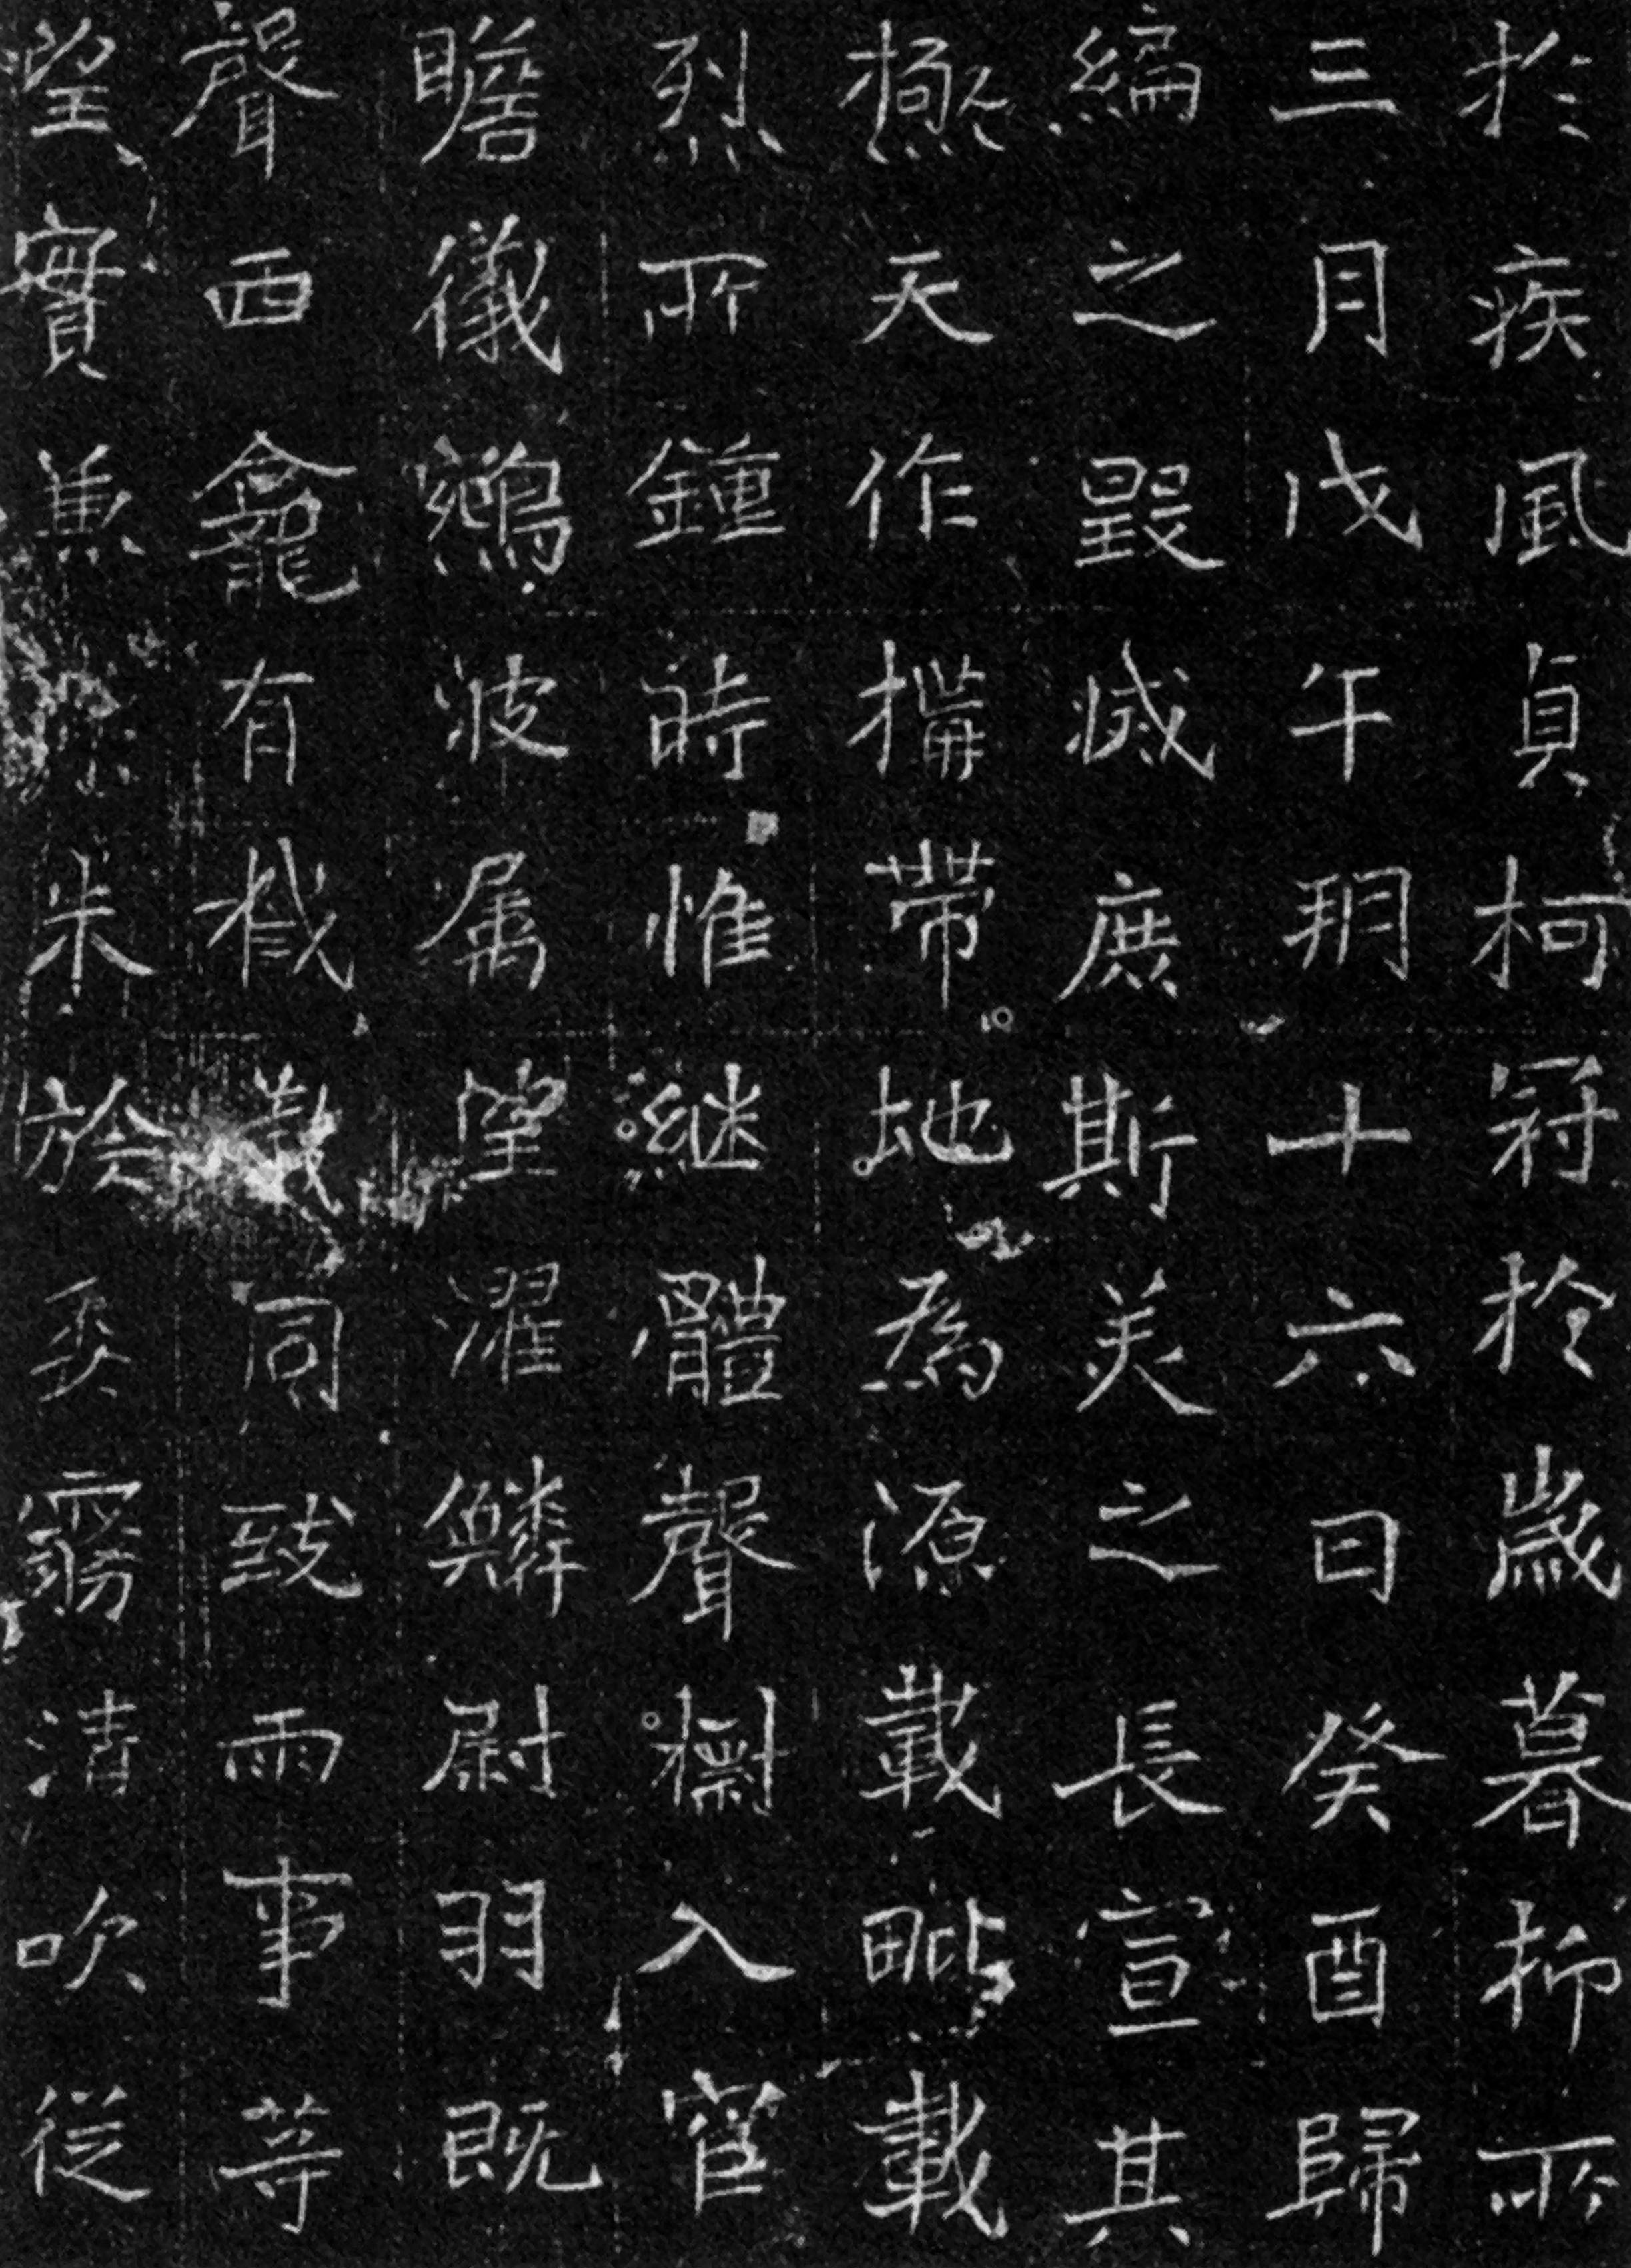 於疾風貞柯冠於歲暮抑所
三月戊午朔十六日癸酉歸
編之毀滅庶斯美之長宣其
極天作構帶地為源載誕載
烈所鍾時惟繼體聲樹入官
瞻儀鵷波屬望濯鱗尉羽既
聲西龕有截同致雨事等
望實兼朱於委霧清吹從